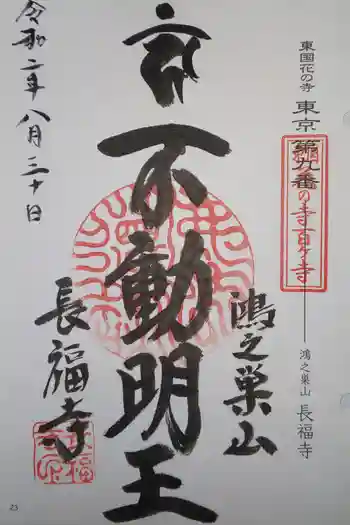 東国花の寺 東京 第九番 ── 鴻之巣山 長福寺
東国花の寺百ヶ寺
鴻之巣山
不動明王
長福寺
令和二年八月三十日
23